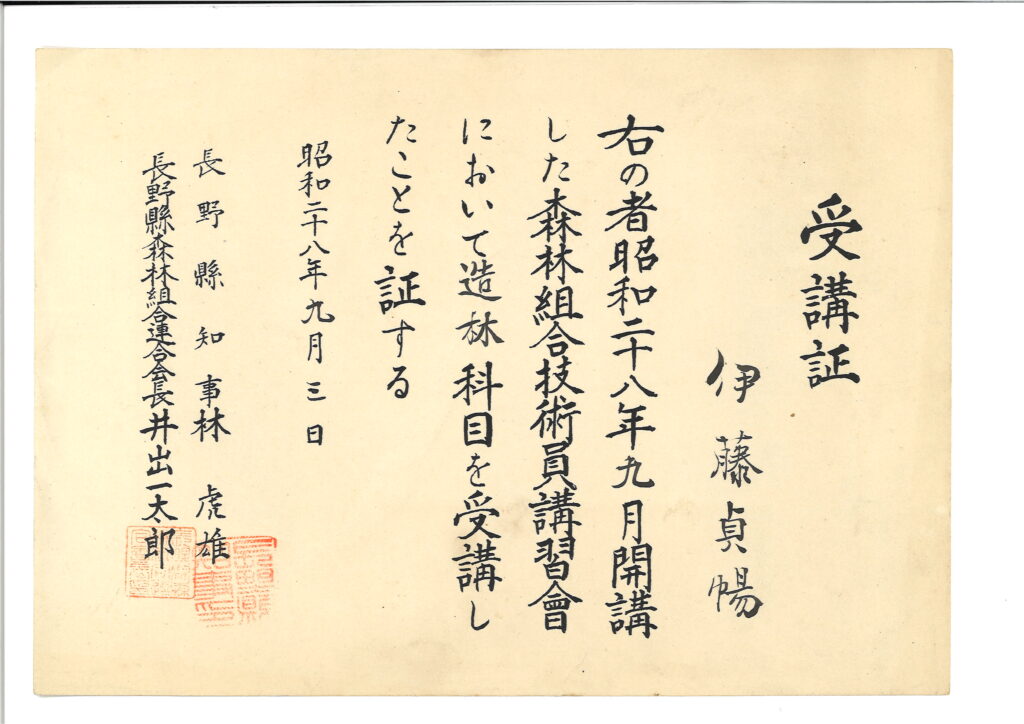 受講証
伊藤貞暢
右の者昭和二十八年九月開講
した森林組合技術員講習會
において造林科目を受講し
たことを証する
昭和二十八年九月三日
長野縣知事林虎雄
長野縣森林組合連合会長井出一太郎